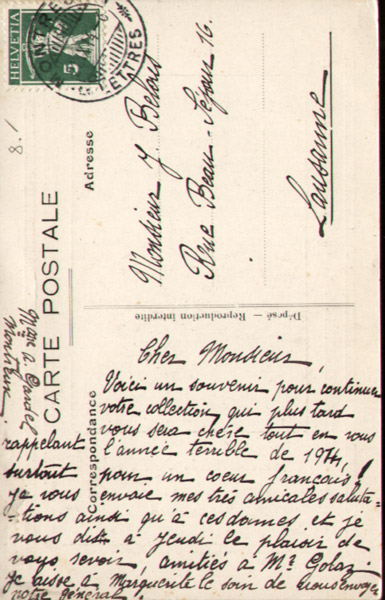 HELVETIA
5
MONTREUX
LETTRES
8.1
CARTE POSTALE
Adresse
Monsieur J Belois
Rue Beau-Séjour 16.
Lausanne
Déposé — Reproduction interdite
Correspondance
Cher Monsieur,
Voici un souvenir pour continuer
votre collection, qui plus tard
vous sera chère tout en vous
rappelant l'année terrible de 1914,
surtout pour un coeur français!
je vous envoie mes très amicales saluta-
tions ainsi qu'à ces dames et je
vous dis à Jeudi le plaisir de
vous revoir, amitiés à Mr Golaz
je laisse à Marguerite le soin de vous envoyer
notre général.
Montreux